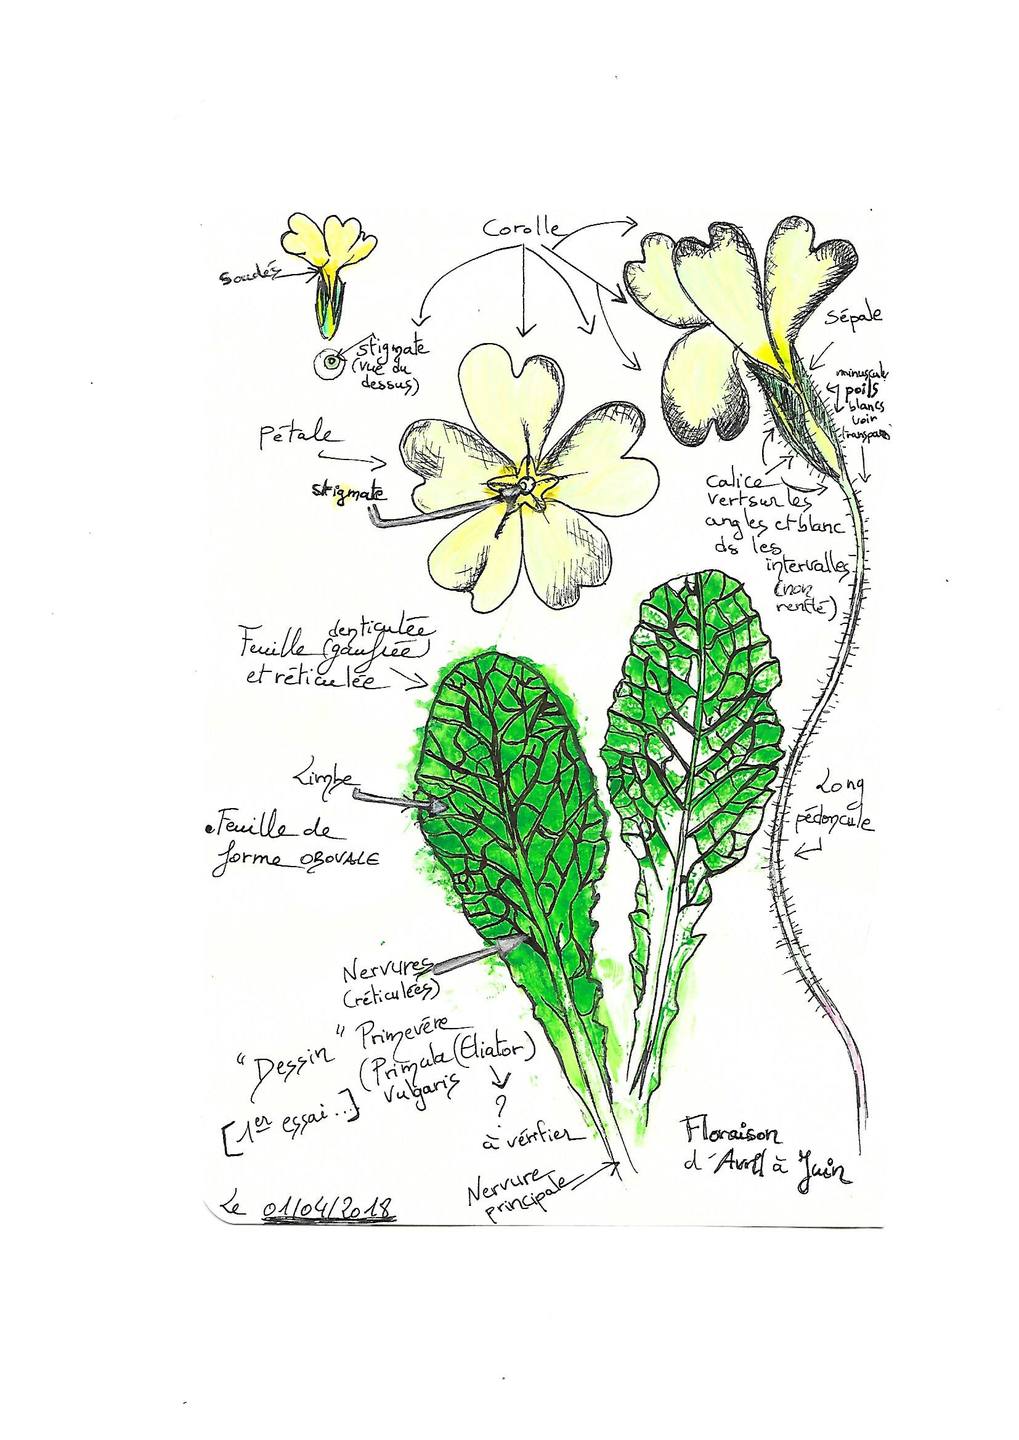 Corolle
Soudés
stigmate
(vue du
dessus)
Sépale
minuscules
poils
blancs
voir
Pétale
stigmate
calice
vert sur les
angles et blanc
ds les
intervalles
(non
renflé)
denticulée
Feuille (gaufrée)
et réticulée
Limbe
Feuille de
forme OBOVALE
Long
pédoncule
Nervures
(réticulées)
"Dessin" Primevère
(Primula (Eliator)
vulgaris
[1er essai...]
?
à vérifier
Nervure
principale
Floraison
d'Avril à Juin
Le 01/04/2018